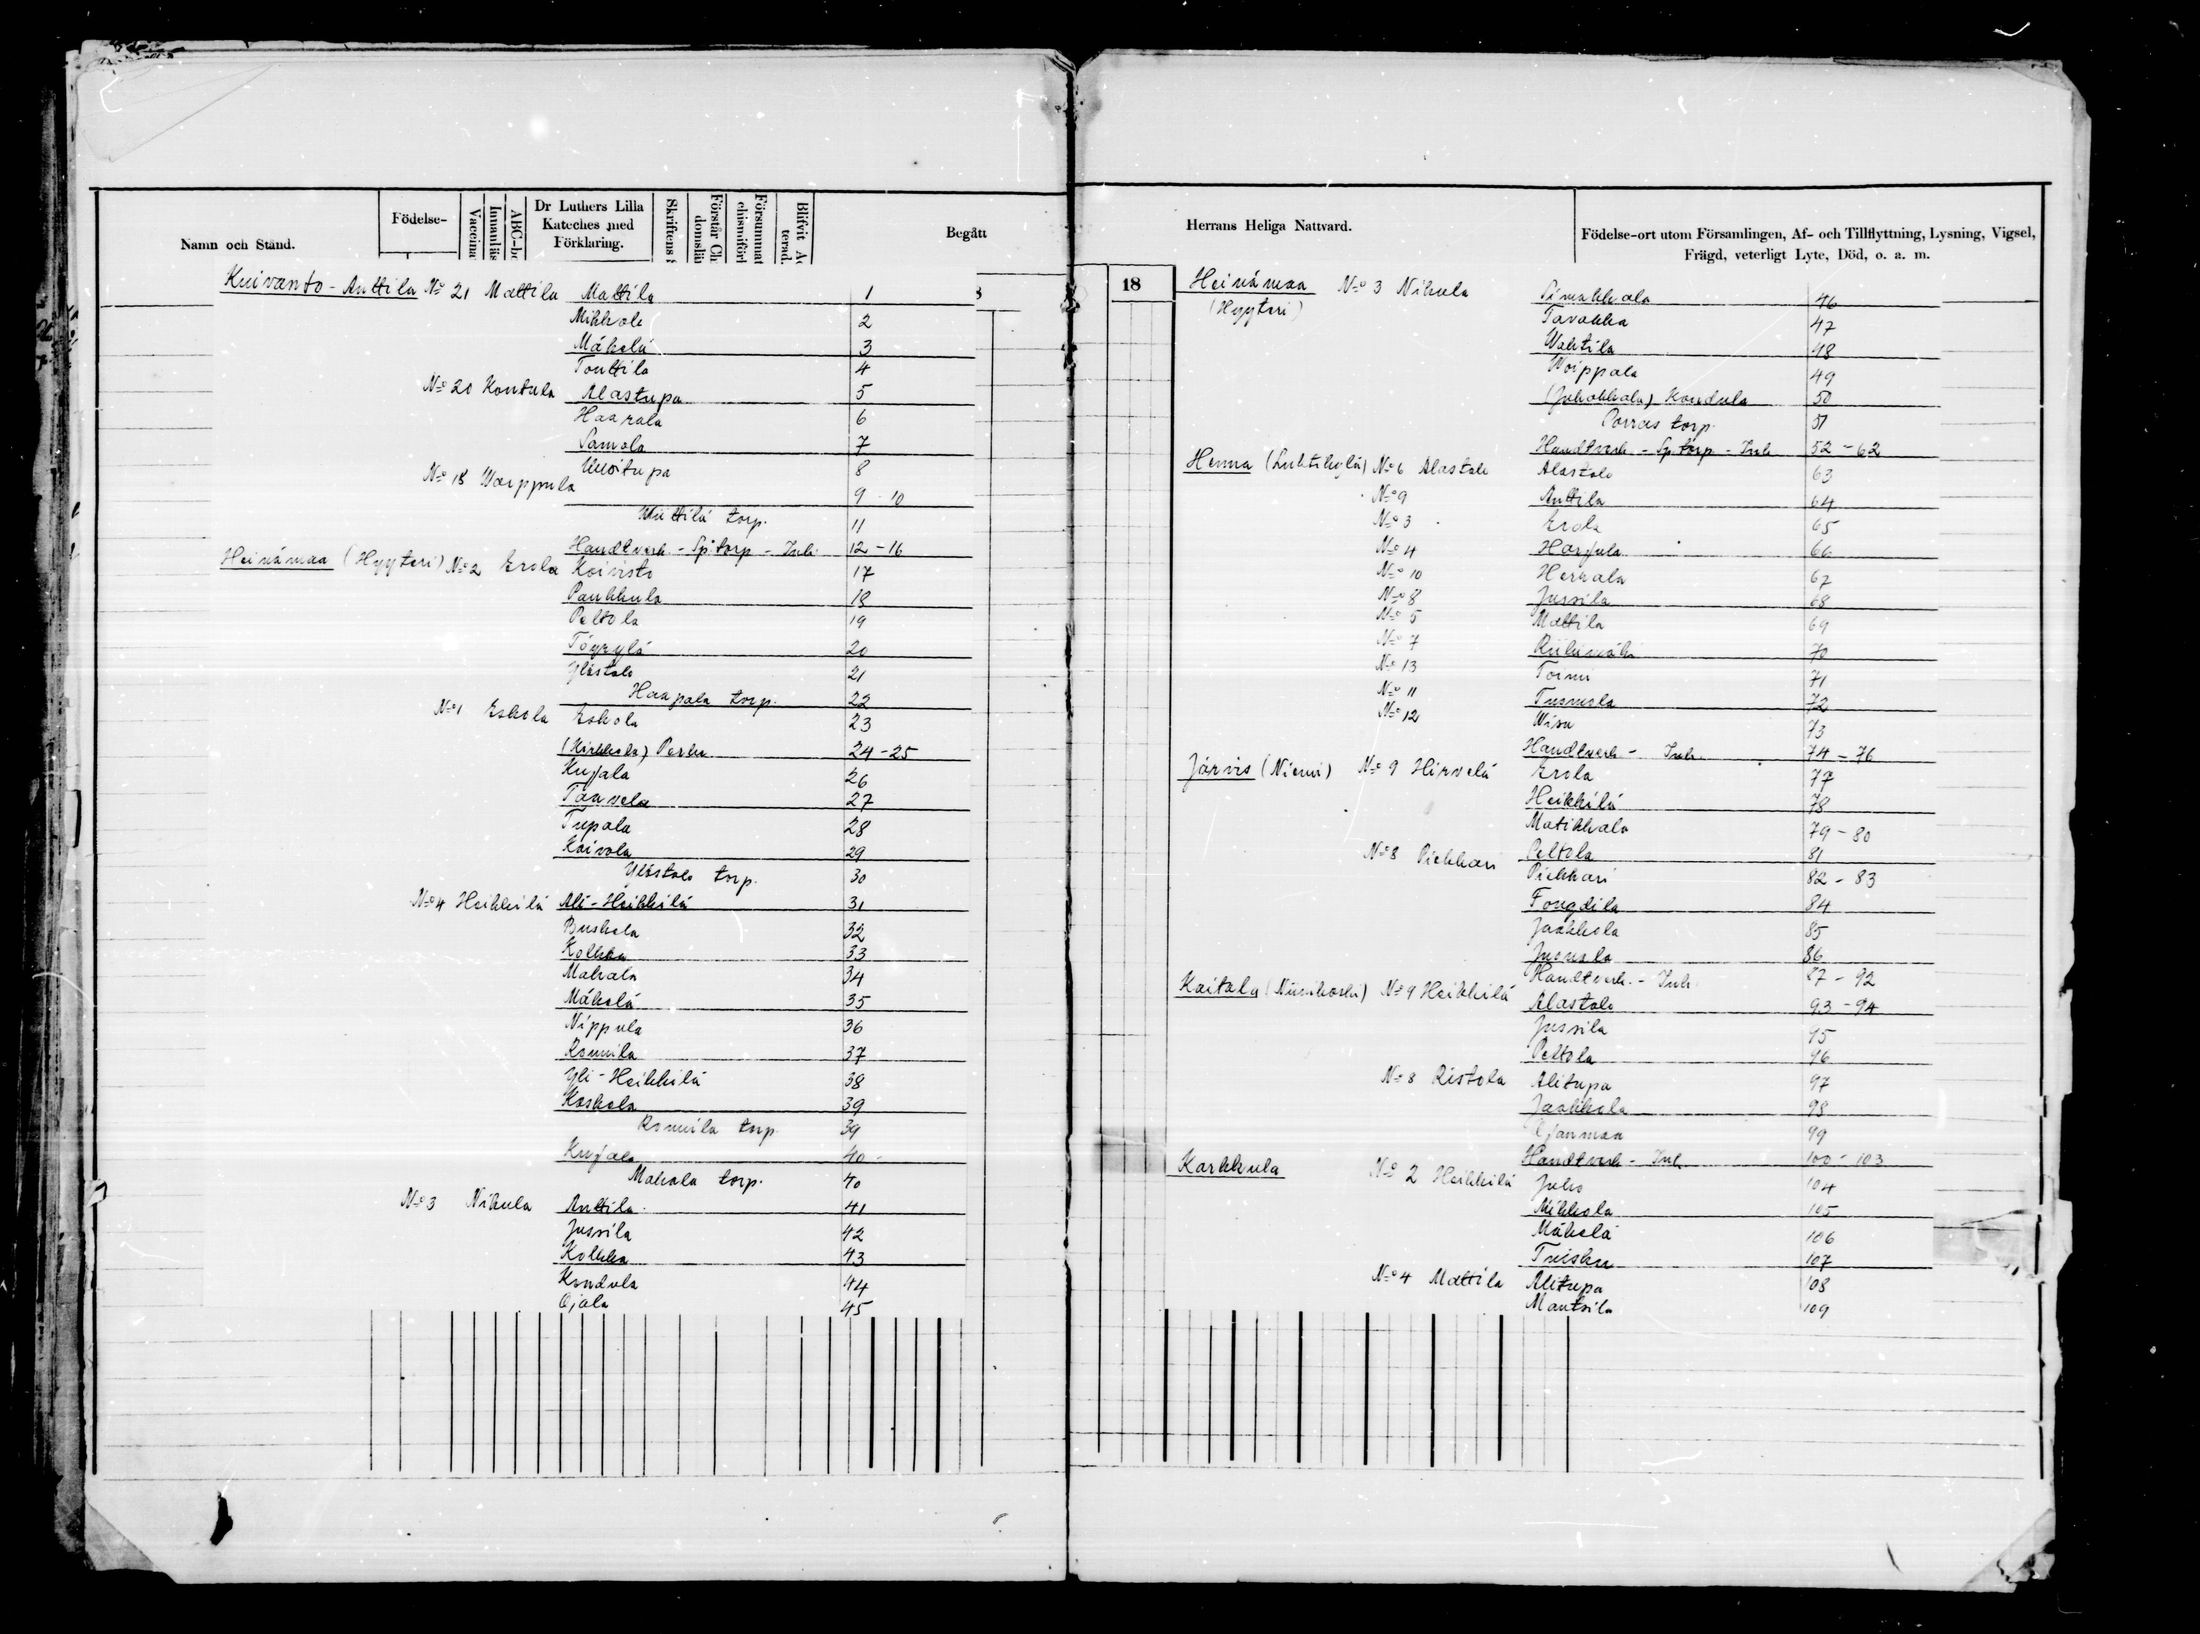 Namn och Stånd.
Födelse-
Vaccina
Innanläs
ABC-b
Dr Luthers Lilla
Kateches med
Förklaring.
Skriftens
Förstår Ch
domslä
Försummat
chismiförh
Blifvit A
terad.
Begått
Kuivanto - Anttila No 21 Mattila Mattila 1
Mikkola 2
Mäkelä 3
Tonttila 4
No 20 Kontula Alastupa 5
Haarala 6
Samola 7
No 18 Warppula Uusitupa 8
9 - 10
torp. 11
Handtverk. - Sp.torp - Inh. 12 - 16
Heinämaa (Hyyteri) No 2 Erola Koivisto 17
Paukkula 18
Peltola 19
Töyrylä 20
Ylöstalo 21
Haapala torp. 22
No 1 Eskola Eskola 23
(Kirkkola) Perhe 24 - 25
Kujala 26
Taavela 27
Tupala 28
Koivola 29
Ylöstalo torp. 30
No 4 Heikkilä Ali-Heikkilä 31
Buskala 32
Kolkka 33
Makala 34
Mäkelä 35
Nippula 36
Romula 37
Yli-Heikkilä 38
Koskela 39
Romula torp. 39
Kujala 40
Makala torp. 40
No 3 Nikula Anttila 41
Jussila 42
Kolkka 43
Kondula 44
Ojala 45
Herrans Heliga Nattvard.
Födelse-ort utom Församlingen, Af- och Tillflyttning, Lysning, Vigsel,
Frägd, veterligt Lyte, Död, o. a. m.
18
Heinämaa No 3 Nikula Simakkala 46
(Hyyteri) Tavakka 47
Wahtila 48
Woippala 49
(Juhakkala) Kondula 50
Porras torp. 51
Handtverk. - Sp.torp - Inh. 52 - 62
Henna (Luhtikylä) No 6 Alastalo Alastalo 63
No 9 Anttila 64
No 3 Erola 65
No 4 Harjula 66
No 10 Herrala 67
No 8 Jussila 68
No 5 Mattila 69
No 7 Riihimäki 70
No 13 Toimi 71
No 11 Tuomola 72
No 12 Wisu 73
Handtverk - Inh. 74 - 76
Järvis (Niemi) No 9 Hirvelä Erola 77
Heikkilä 78
Matikkala 79 - 80
No 8 Piekkari Peltola 81
Piekkari 82 - 83
Fougdila 84
Jaakkola 85
Juonala 86
Handtverk. - Inh. 87 - 92
Kaitala (Niinikoski) No 9 Heikkilä Alastalo 93 - 94
Jussila 95
Peltola 96
No 8 Ristola Alitupa 97
Jaakkola 98
Ojanmaa 99
Handtverk - Inh. 100 - 103
Karkkula No 2 Heikkilä Juho 104
Mikkola 105
Mäkelä 106
Tuisku 107
No 4 Mattila Alitupa 108
Mantsila 109